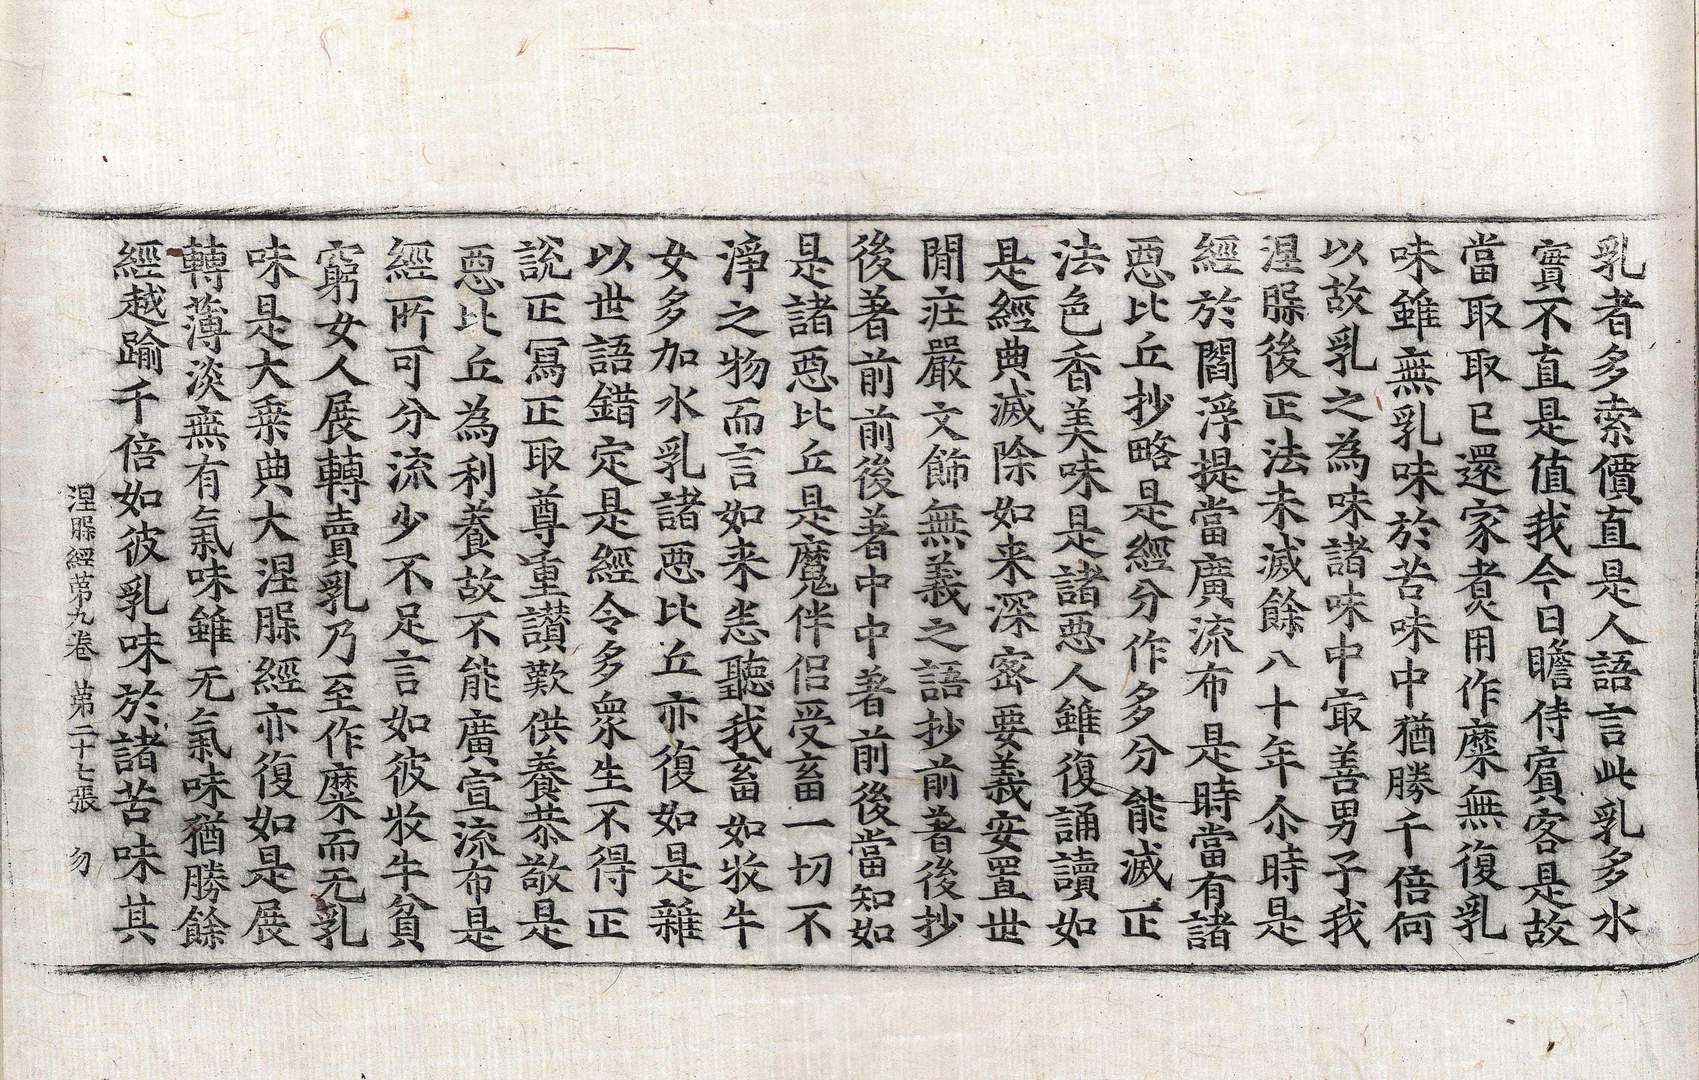 乳者多索價直是人語言此乳多水
實不直是值我今日瞻侍賓客是故
當取取已還家煮用作糜無復乳
味雖無乳味於苦味中猶勝千倍何
以故乳之為味諸味中㝡善男子我
涅槃後正法未滅餘八十年尒時是
經於閻浮提當廣流布是時當有諸
惡比丘抄略是經分作多分能滅正
法色香美味是諸惡人雖復誦讀如
是經典滅除如来深密要義安置世
閒莊嚴文飾無義之語抄前著後抄
後著前前後著中中著前後當知如
是諸惡比丘是魔伴侣受畜一切不
淨之物而言如来悉聽我畜如牧牛
女多加水乳諸惡比丘亦復如是雜
以世語錯定是經令多衆生不得正
說正寫正取尊重讃歎供養恭敬是
惡比丘為利養故不能廣宣流布是
經所可分流少不足言如彼牧牛貧
窮女人展轉賣乳乃至作糜而无乳
味是大乗典大涅槃經亦復如是展
轉薄淡無有氣味雖无氣味猶勝餘
經越踰千倍如彼乳味於諸苦味其
涅槃經苐九卷 第二十七張 勿